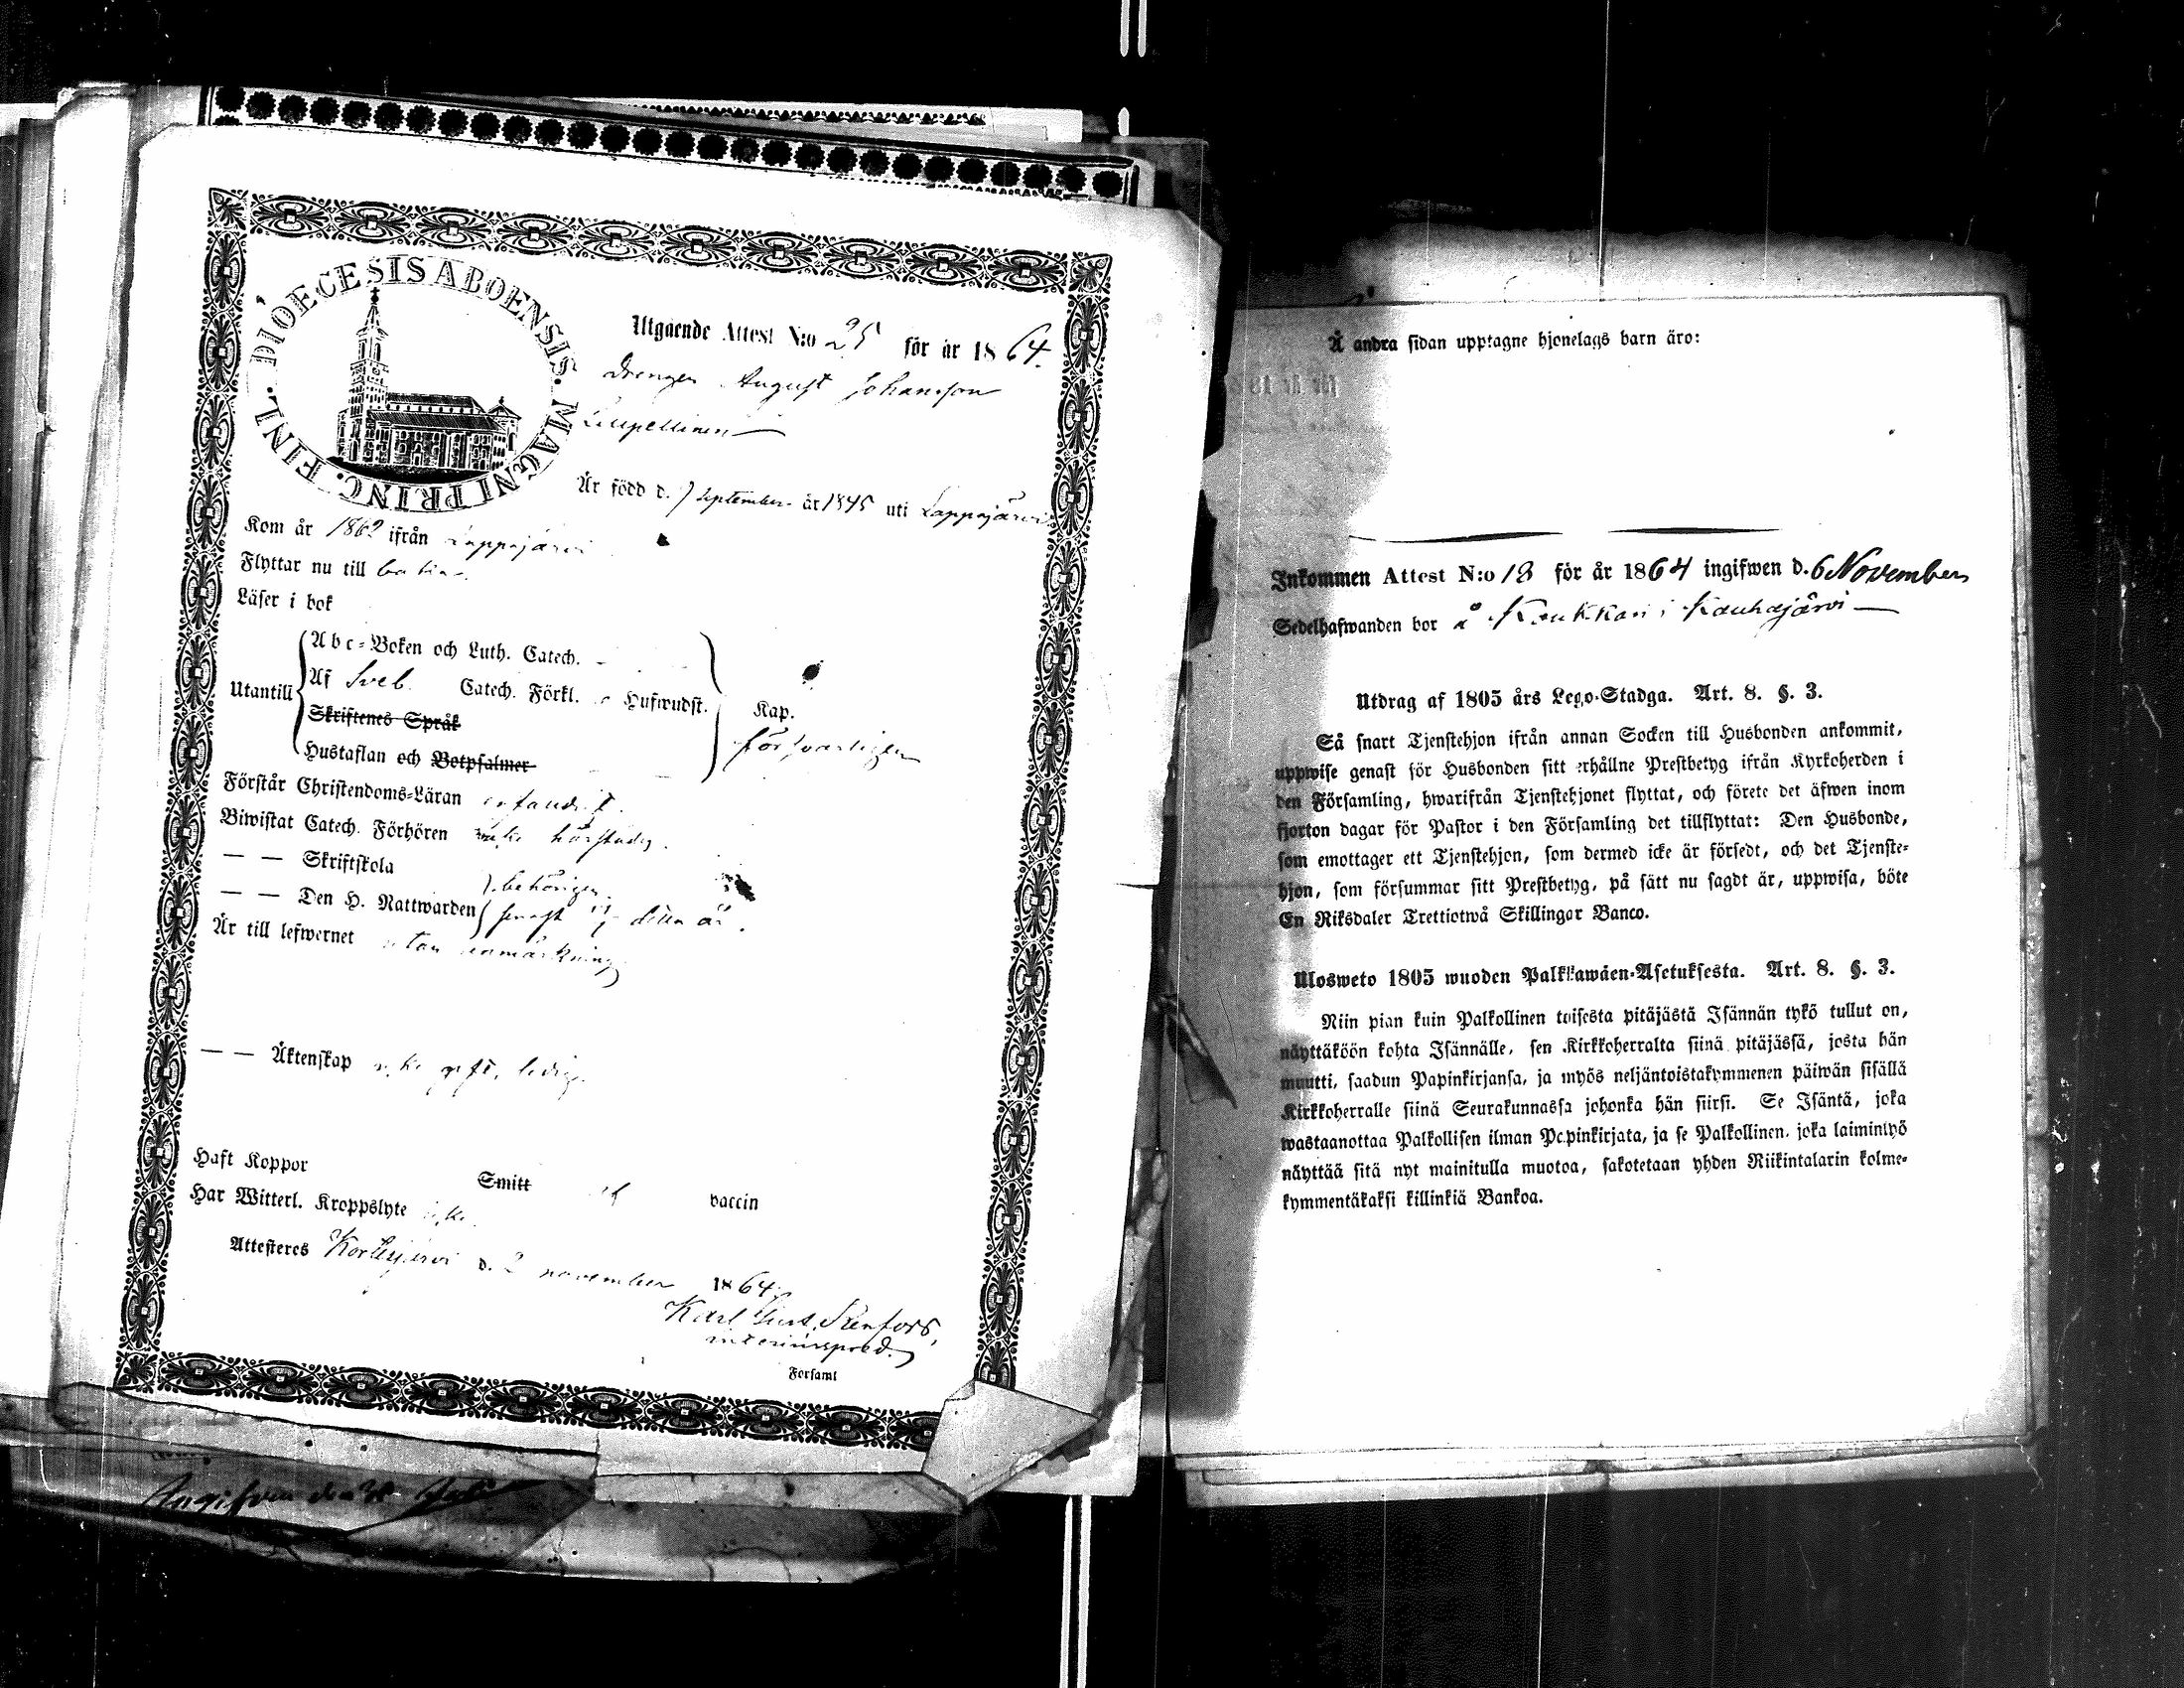 DIOECESIS ABOENSIS. MAGNI PRINC. FINL.
Utgående Attest N:o 25 för år 1864.
Drengen August Johansson
Är född d. 7 September år 1845 uti Lappajärvi
Kom år 1862 ifrån Lappajärvi
Flyttar nu till
Läser i bok
Utantill
Abc-Boken och Luth. Catech.
Af Sveb. Catech. Förkl. Hufwudst.
Skriftenes Språk
Hustaflan och Botpsalmer
Kap.
försvarligen
Förstår Christendoms-Läran
Biwistat Catech. Förhören
— — Skriftskola
behörigen
— — Den H. Nattwarden senast detta år.
Är till lefwernet utan anmärkning
— — Äktenskap icke gift, ledig.
Haft Koppor Smitt vaccin
Har Witterl. Kroppslyte icke.
Attesteres Kortesjärvi d. 2 november 1864.
Karl Gust. Stenfors,
Forsaml
Ingifven den
Å andra sidan upptagne hjonelags barn äro:
Inkommen Attest N:o 18 för år 1864 ingifwen d. 6 November
Sedelhafwanden bor å Kaukkari i Kauhajärvi
Utdrag af 1805 års Lego-Stadga. Art. 8. §. 3.
Så snart Tjenstehjon ifrån annan Socken till Husbonden ankommit,
uppwise genast för Husbonden sitt erhållne Prestbetyg ifrån Kyrkoherden i
den Församling, hwarifrån Tjenstehjonet flyttat, och förete det äfwen inom
fjorton dagar för Pastor i den Församling det tillflyttat: Den Husbonde,
som emottager ett Tjenstehjon, som dermed icke är försedt, och det Tjenste-
hjon, som försummar sitt Prestbetyg, på sätt nu sagdt är, uppwisa, böte
En Riksdaler Trettiotwå Skillingar Banco.
Ulosweto 1805 wuoden Palkkawäen-Asetuksesta. Art. 8. §. 3.
Niin pian kuin Palkollinen toisesta pitäjästä Isännän tykö tullut on,
näyttäköön kohta Isännälle, sen Kirkkoherralta siinä pitäjässä, josta hän
muutti, saadun Papinkirjansa, ja myös neljäntoistakymmenen päiwän sisällä
Kirkkoherralle siinä Seurakunnassa johonka hän siirsi. Se Isäntä, joka
wastaanottaa Palkollisen ilman Papinkirjata, ja se Palkollinen, joka laiminlyö
näyttää sitä nyt mainitulla muotoa, sakotetaan yhden Riikintalarin kolme-
kymmentäkaksi killinkiä Bankoa.